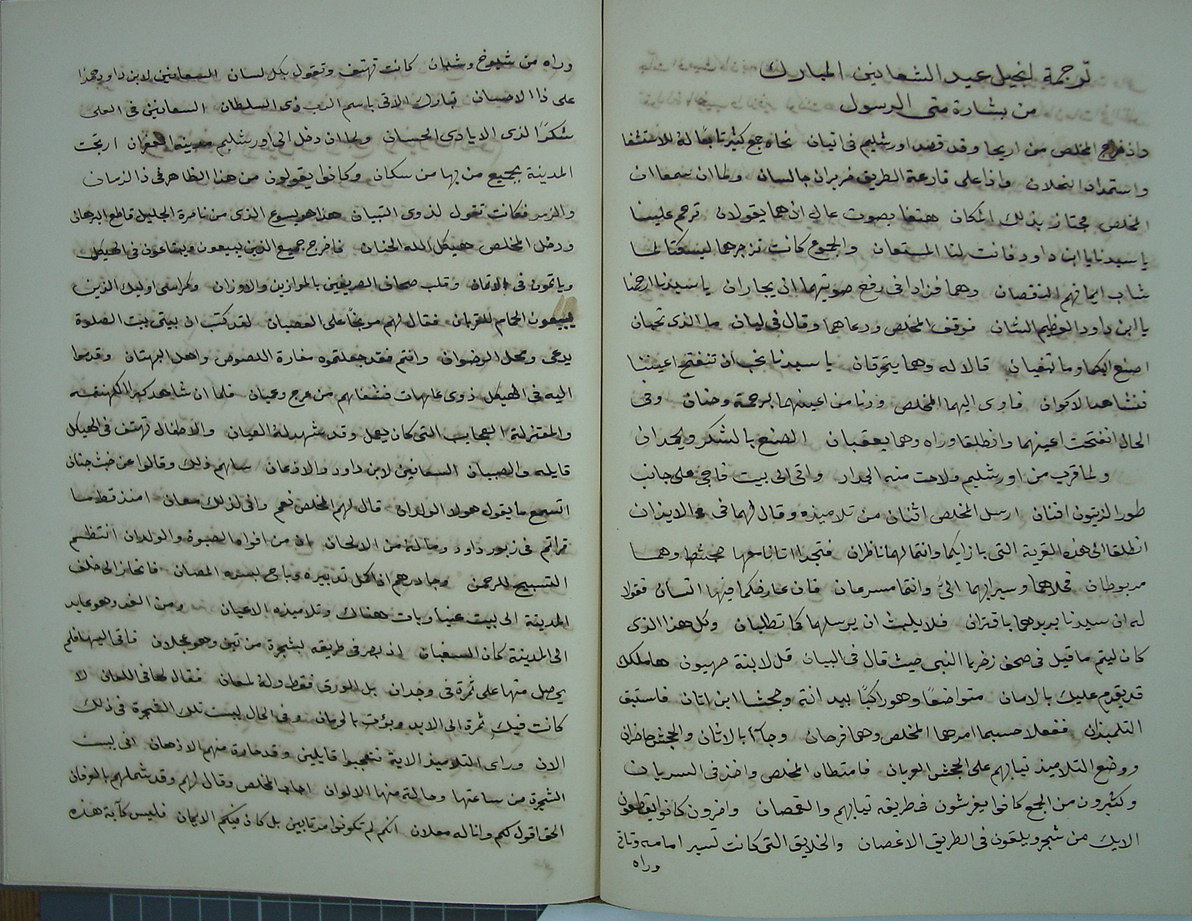 ترجمة انجيل عيد الشعانين المبارك
من بشارة متى الرسول
واذ خرج المخلص من اريحا وقد قصد اورشليم في اتيان نحاه جمع كثير تابعا له للاستشفا
واستمداد الخلان واذا على قارعة الطريق ضريران جالسان ولما ان سمعا ان
المخلص مجتاز بذلك المكان هتفا بصوت عالى ان هما يقولان ترحم علينا
يا سيدنا يا ابن داود فانت لنا المستعان والجموع كانت تزجرهما ليسكتا لما
شاب ايمانهم النقصان وهما فزادا في رفع صوتهما اذ يجاران يا سيدنا ارحمنا
يا ابن داود العظيم الشان فوقف المخلص ودعاهما وقال في ليان ما الذى تحبان
اصنع لكما وما تبغيان قالا له وهما يتحرقان يا سيدنا نحب ان تنفتح اعيننا
فنشاهد الاكوان فاوى اليهما المخلص ودنا من اعينهما برحمة وحنان وفى
الحال انفتحت اعينهما وانطلقا وراه وهما يعقبان الصنع بالشكر ويحمدان
ولما قرب من اورشليم ولاحت منه الجدار واتى الى بيت فاجى على جانب
طور الزيتون افنان ارسل المخلص اثنان من تلاميذه وقال لهما فى الايذان
انطلقا الى هذه القرية التى بازايكما وانتما لهما ناظران فتجدا اتانا معها جحشها وهما
مربوطان فحلاهما وسيرا بهما الىّ وانتما مسرعان فان عارضكما فيها انسان فقولا
له ان سيدنا يريدهما باقتران فلا يلبث ان يرسلهما كما تطلبان وكل هذا الذى
كان ليتم ما قيل فى صحف زخريا النبى حيث قال فى البيان قل لابنة صهيون ها ملكك
قد يقدم عليك بالامان متواضعًا وهو راكبًا بيد اتانة وجحشا ابن اتان فاستبق
التلميذان ففعلا حسبما امرهما المخلص وهما فرحان وجاءا بالاتان والجحش حاضران
ووضع التلاميذ ثيابهم على الجحش العريان فامتطاه المخلص واخذ فى السريان
وكثيرون من الجمع كانوا يفرشون في طريقه ثيابهم والقمصان واخرون كانوا يقطعون
الايك من شجر ويلقون فى الطريق الاغصان والخلايق التى كانت تسير امامه وتاتى
وراه
وراه من شيوخ وشبان كانت تهتف وتقول بكل لسان السعانين لابن داود حمدا
على ذا الاحسان تبارك الاتى باسم الرب ذى السلطان السعانين فى العلى
شكرًا لذى الايادى الحسان ولما ان دخل الى اورشليم مدينة العمران ارتجت
المدينة بجميع من بها من سكان وكانوا يقولون من هذا الظاهر فى ذا الزمان
والزمر فكانت تقول لذوى التبيان هذا هو يسوع الذى من ناصرة الجليل قاطع البرهان
ودخل المخلص هيكل الله الحنان فاخرج جميع الذين يبيعون ويبتاعون فى الهيكل
وياتمون فى وقلب صحاف الصريفين بالموازين والاوزان وكراسى اوليك الذين
يبيعون الحمام للقربان فقال لهم موبخًا على العصيان لقد كتب ان بيتى بيت الصلوة
يدعى ومحل الرضوان وانتم فقد جعلتموه مغارة اللصوص واهل البهتان وقدموا
اليه فى الهيكل ذوى عاهات فشفاهم من عرج وعميان فلما ان شاهد كبرا الكهنة
والمعتزلة العجايب التى كان يعمل وقد شهد له العيان والاطفال تهتف فى الهيكل
قايلة والصبيان السعانين لابن داود والاذعان ساهم ذلك وقالوا عن خبث جنان
اتسمع ما يقول هولا الولدان قال لهم المخلص نعم وافى لذلك معان امنذ قط ما
قراتم فى زبور داود وما له من الالحان بان من افواه الصبوة والولدان انتظم
التسبيح للرحمن وجادرهم افاكل تدبيره وباجى بسره المصان فانحاز الى خلف
المدينة الى بيت عنيا وبات هناك وتلاميذه الاعيان ومن الغد وهو عايد
الى المدينة كان السغبان اذ بصر فى طريقه بشجرة من تين وهو عجلان فاتى اليها فلم
يحصل منها على ثمرة فى وجدان بل الورق فقط وله لمعان فقال لها فى اللعان لا
كانت فيك ثمرة الى الابد وبؤت بالحرمان وفى الحال يبست تلك الشجرة فى ذلك
الان وراى التلاميذ الاية فتعجبوا قايلين وقد حارة منهم الاذهان انى يبست
الشجرة من ساعتها وحالة منها الالوان اجاب المخلص وقال لهم وقد شملهم بالعرفان
الحق اقول لكم وانا له معلان انكم لم تكونوا مرتابين بل كان فيكم الايمان فليس كآية هذه